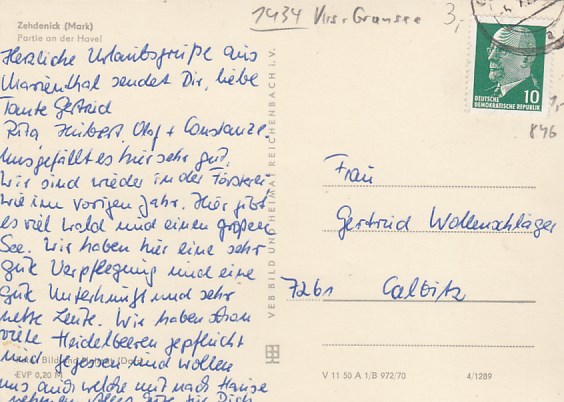 Zehdenick (Mark)
Partie an der Havel
1434 Krs. Gransee
3,-
Herzliche Urlaubsgrüße aus
Marienthal sendet Dir, liebe
Tante Gertrud
Rita, Heribert, Olaf + Constanze.
Uns gefällt es hier sehr gut.
Wir sind wieder in der Försterei
wie im vorigen Jahr. Hier gibt
es viel Wald und einen großen
See. Wir haben hier eine sehr
gute Verpflegung und eine
gute Unterkunft und sehr
nette Leute. Wir haben schon
viele Heidelbeeren gepflückt
und gegessen und wollen
uns auch welche mit nach Hause
nehmen. Alles Gute für Dich
EVP 0,20 M
VEB BILD UND HEIMAT REICHENBACH I. V.
10
DEUTSCHE
DEMOKRATISCHE REPUBLIK
846
Frau
Gertrud Wollenschläger
7261 Calbitz
V 11 50 A 1/B 972/70
4/1289